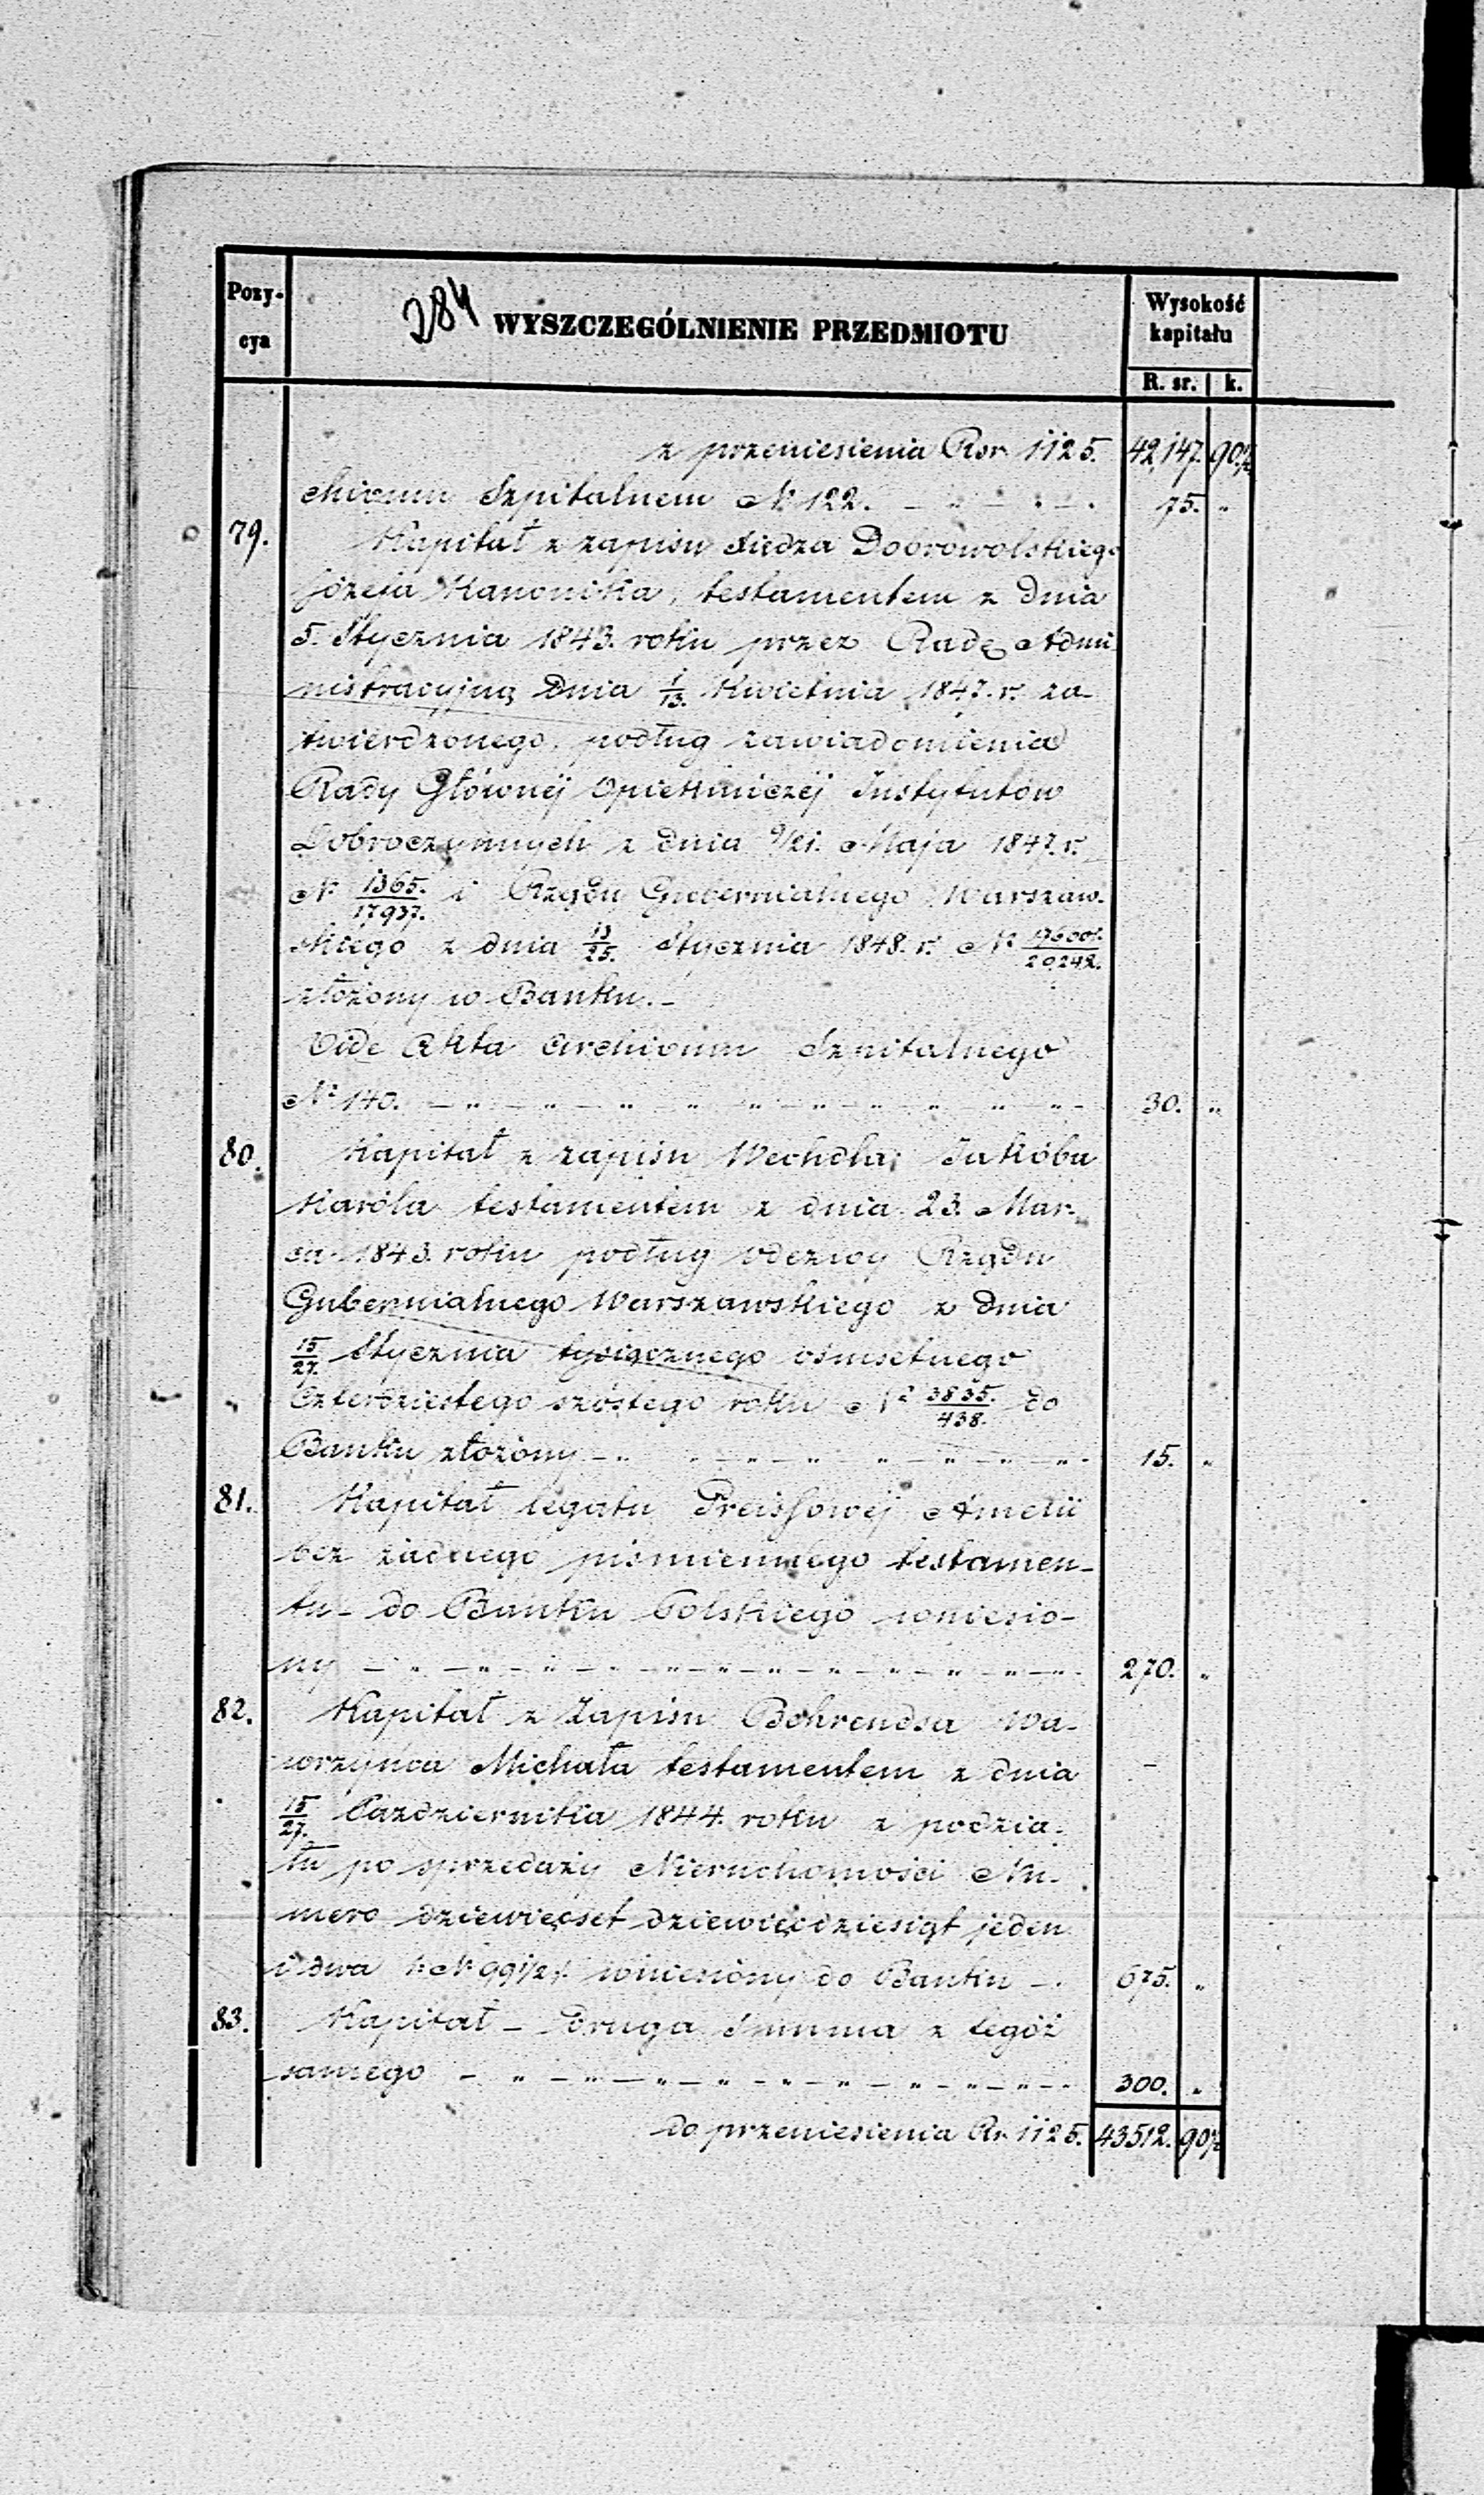 Pozycya-
284 WYSZCZEGÓLNIENIE PRZEDMIOTU
Wysokość kapitału
R. sr. k.
z przeniesienia Rsr 1125. 42,147. 90½
chivum Szpitalnem № 122. 75. "
79. Kapitał z zapisu Xiędza Dobrowolskiego
Józefa Kanonika, testamentem z dnia
5. Stycznia 1843. roku przez Radę Admi
nistracyjną dnia 1/13. Kwietnia 1847. r. za-
twierdzonego, podług zawiadomienia
Rady Głównéj Opiekuńczéj Instytutów
Dobroczynnych z dnia 9/21. Maja 1847. r.
№ 1365./17937. i Rządu Gubernialnego Warszaw-
skiego z dnia 13/25. Stycznia 1848. r. № /20242.
złożony w Banku. -
Vide Akta Archivum Szpitalnego
№ 140. 30. "
80. Kapitał z zapisu Wechdla Jakóba
Karóla testamentem z dnia 23. Mar-
ca 1843. roku podług odezwy Rządu
Gubernialnego Warszawskiego z dnia
15/27. Stycznia tysiącznego ośmsetnego
Czterdziestego szóstego roku № 3835./438. do
Banku złożony 15. "
81. Kapitał legatu Preissowéj Amelii
bez żadnego piśmiennego testamen-
tu - do Banku Polskiego wniesio-
ny 270. "
82. Kapitał z zapisu Bohrendsa Wa-
wrzyńca Michała testamentem z dnia
15/27. Października 1844. roku z podzia-
łu po sprzedaży Nieruchomości Nu-
mero dziewięćset dziewięćdziesiąt jeden
i dwa /: № 991/2 :/ wniesiony do Banku 675. "
83. Kapitał - druga Summa z tegóż
samego 300. "
do przeniesienia Rs 1125. 43512. 90½